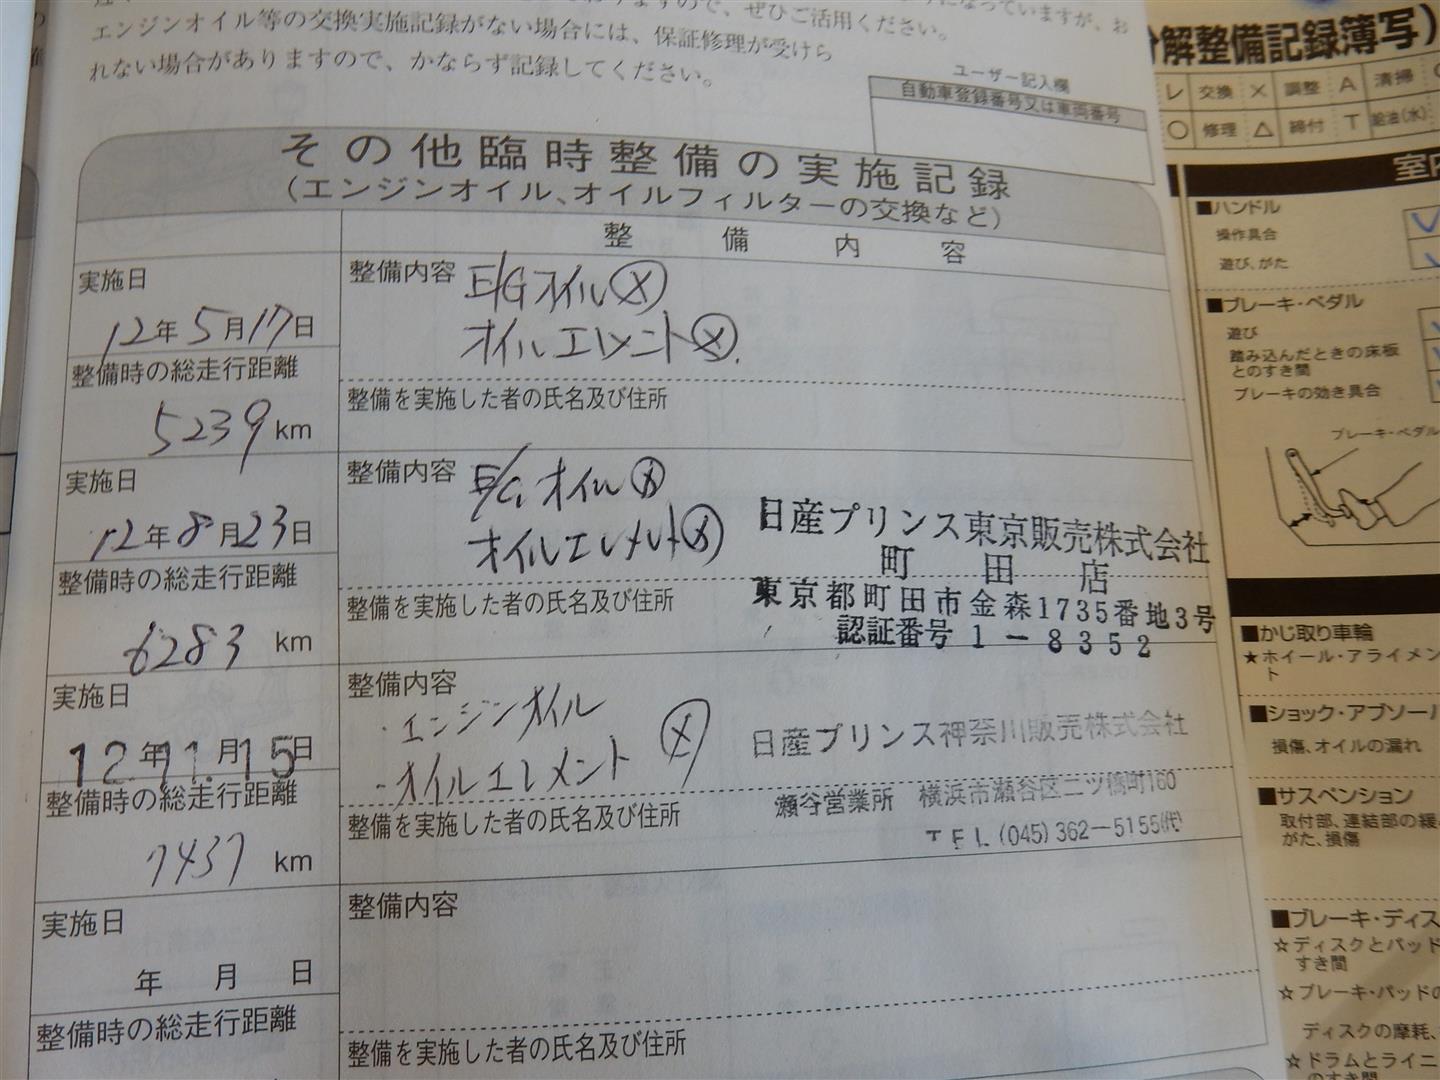 エンジンオイル等の交換実施記録がない場合には、保証修理が受けら
れない場合がありますので、かならず記録してください。
ユーザー記入欄
自動車登録番号又は車両番号
その他臨時整備の実施記録
(エンジンオイル、オイルフィルターの交換など)
整備内容
実施日
12年5月17日
整備時の総走行距離
5239km
整備内容
E/Gオイル Ⓧ
オイルエレメント Ⓧ.
整備を実施した者の氏名及び住所
実施日
12年8月23日
整備時の総走行距離
6283km
整備内容
E/Gオイル Ⓧ
オイルエレメント Ⓧ
整備を実施した者の氏名及び住所
日産プリンス東京販売株式会社
町田店
東京都町田市金森1735番地3号
認証番号1-8352
実施日
12.年11.月15日
整備時の総走行距離
7437km
整備内容
・エンジンオイル
・オイルエレメント Ⓧ
整備を実施した者の氏名及び住所
日産プリンス神奈川販売株式会社
瀬谷営業所 横浜市瀬谷区二ツ橋町160
TEL(045)362-5155(代)
実施日
年月日
整備時の総走行距離
整備内容
整備を実施した者の氏名及び住所
分解整備記録簿写)
レ 交換 × 調整 A 清掃
○ 修理 △ 締付 T 給油(水)
室内
■ハンドル
操作具合
遊び、がた
■ブレーキ・ペダル
遊び
踏み込んだときの床板
とのすき間
ブレーキの効き具合
ブレーキ・ペダル
■かじ取り車輪
★ホイール・アライメン
ト
■ショック・アブソーバ
損傷、オイルの漏れ
■サスペンション
取付部、連結部の緩み
がた、損傷
■ブレーキ・ディス
☆ディスクとパッド
すき間
☆ブレーキ・パッドの
ディスクの摩耗、
☆ドラムとライニ
のすき間